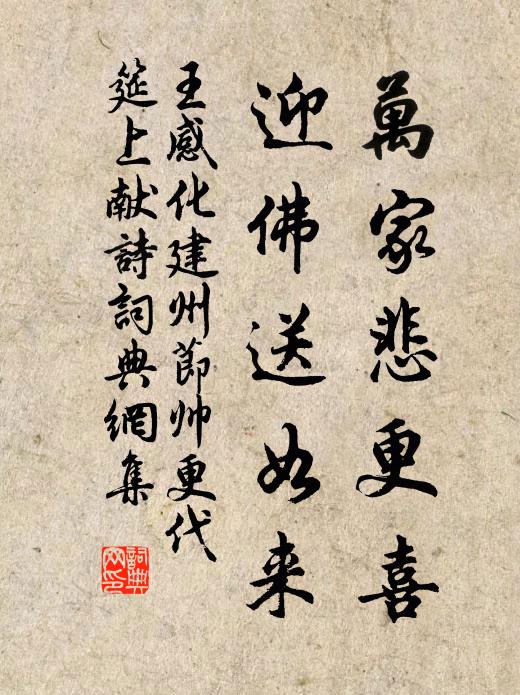 萬家悲更喜
迎佛送如来
王感化建州節帅更代
筵上献詩詞典網集
詞典網印